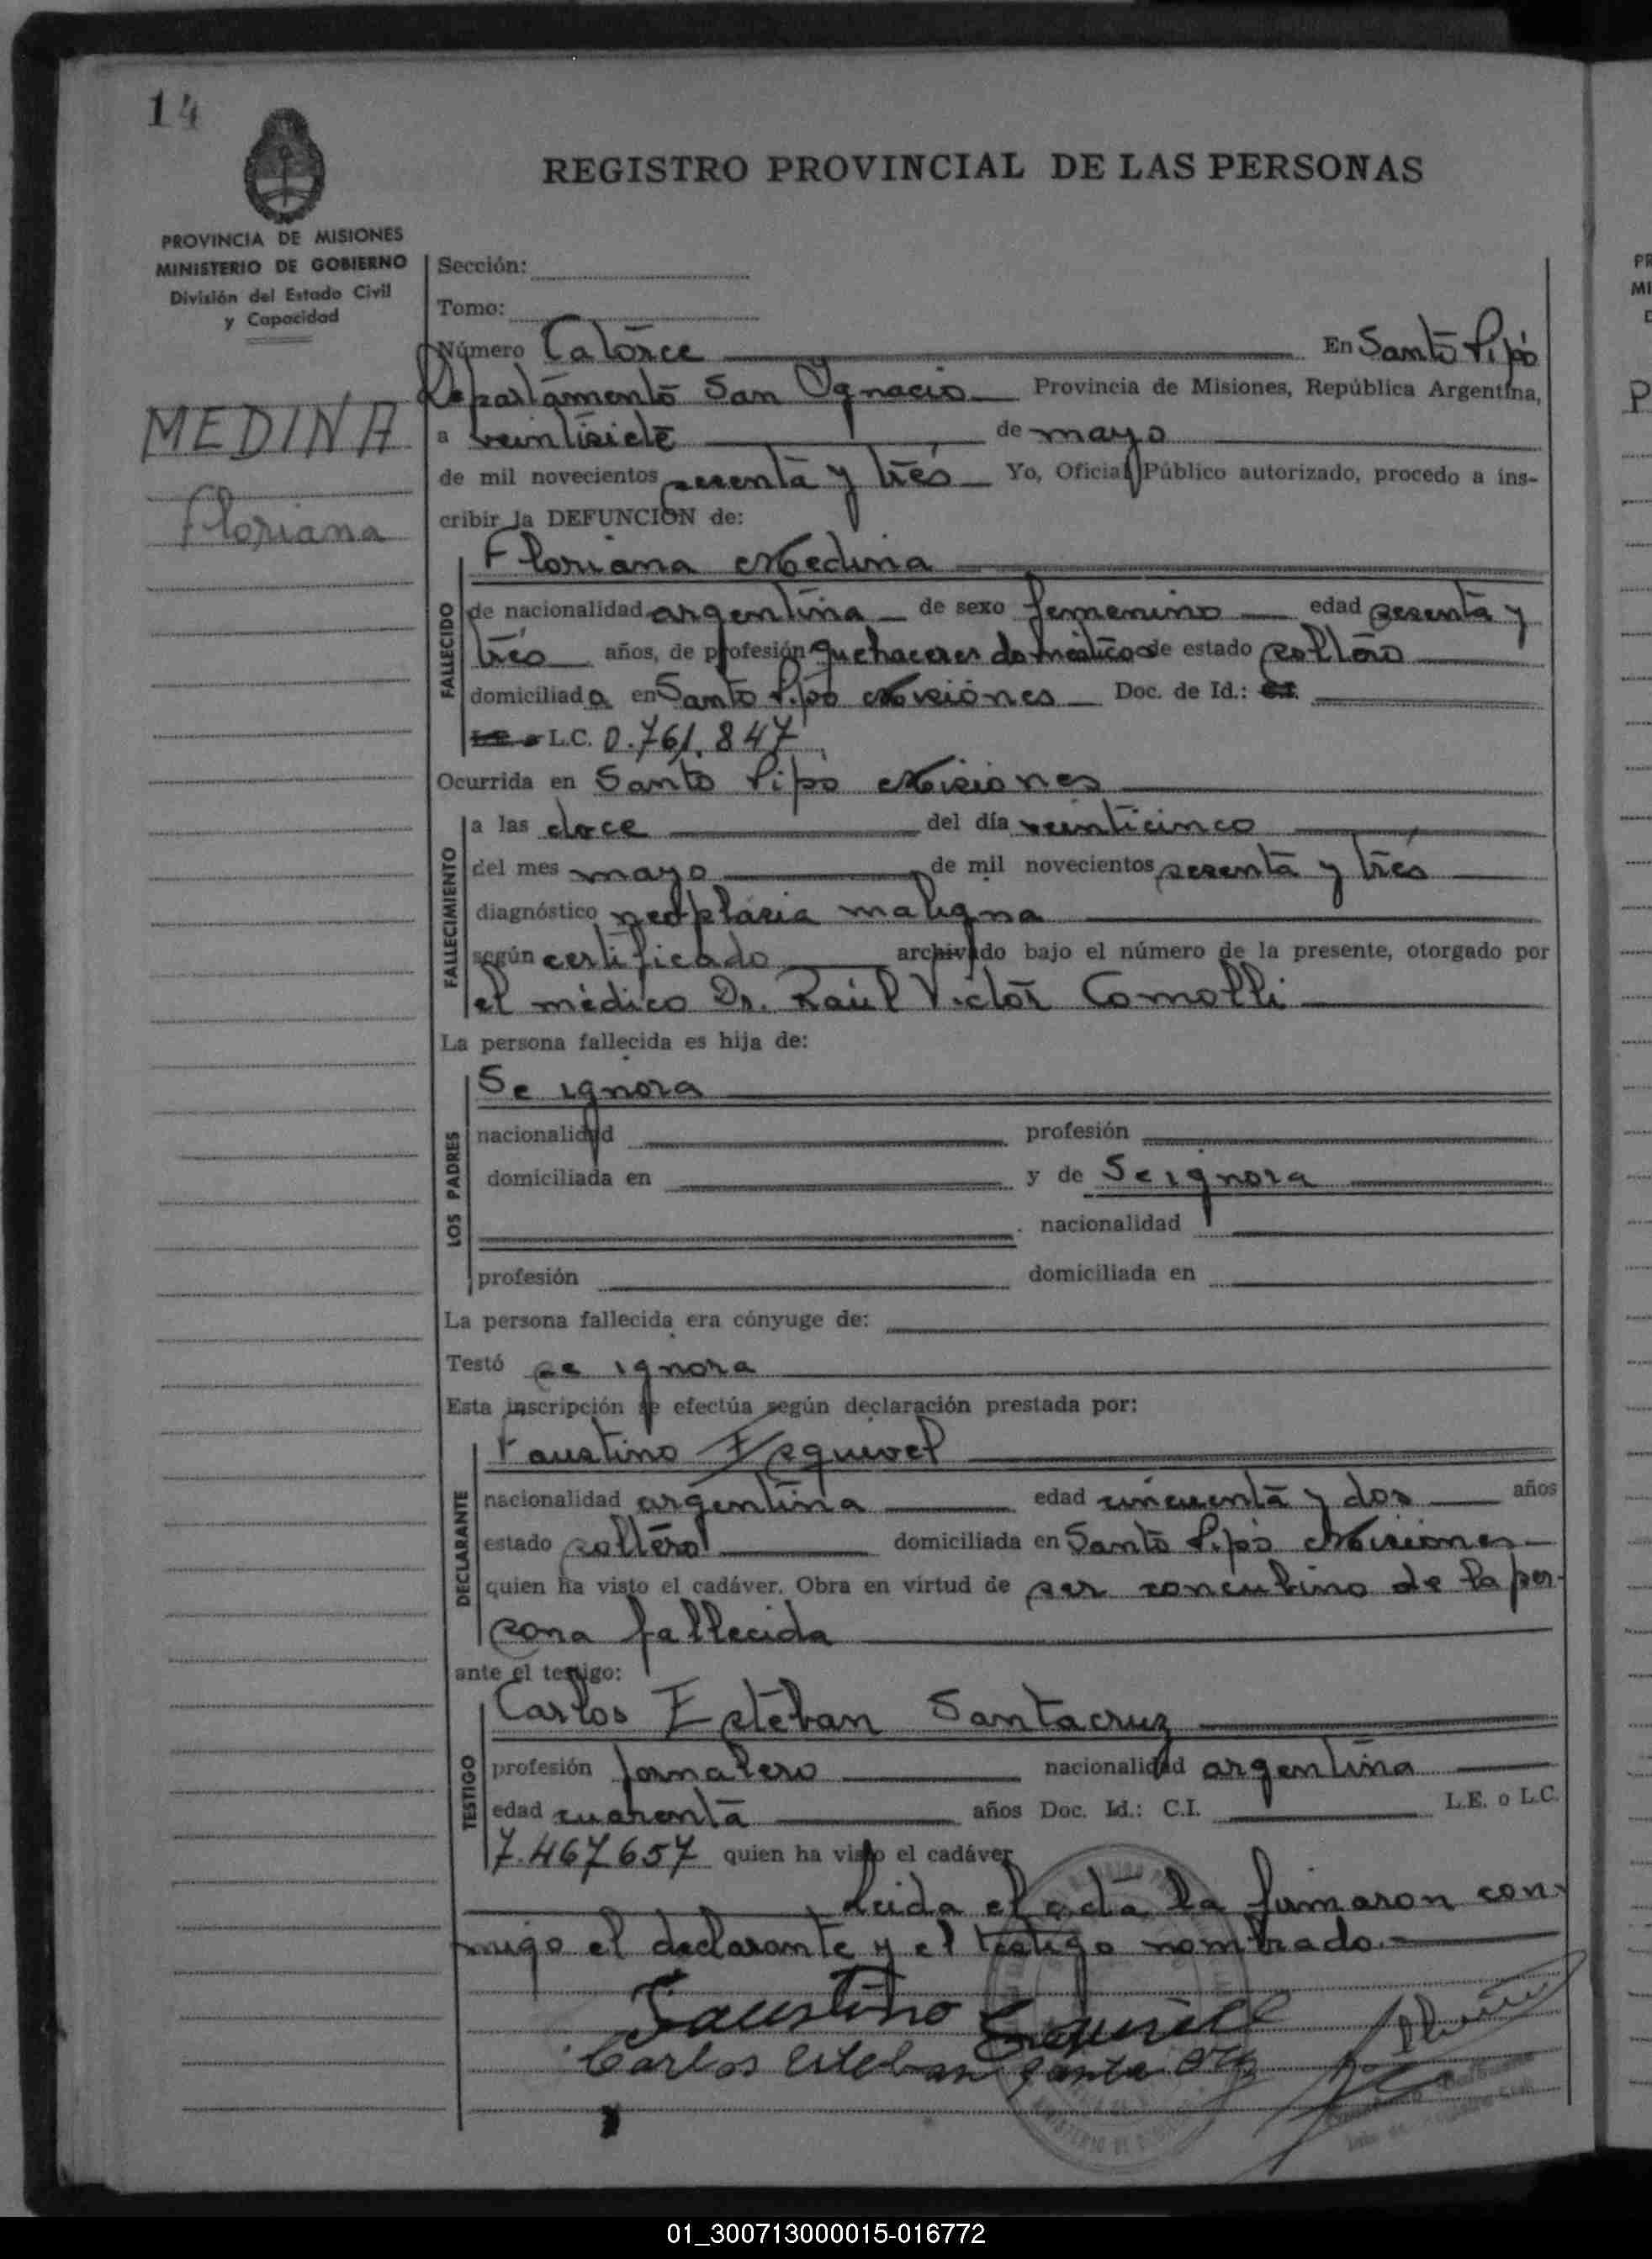 14
REGISTRO PROVINCIAL DE LAS PERSONAS
PROVINCIA DE MISIONES
MINISTERIO DE GOBIERNO
División del Estado Civil
y Capacidad
MEDINA
Floriana
Sección:
Tomo:
Número Catorce En Santo Pipó
Departamento San Ignacio Provincia de Misiones, República Argentina,
a veintisiete de mayo
de mil novecientos sesenta y tres Yo, Oficial Público autorizado, procedo a ins-
cribir la DEFUNCION de:
FALLECIDO
Floriana Medina
de nacionalidad argentina de sexo femenino edad sesenta y
tres años, de profesión quehaceres domésticos de estado soltero
domiciliada en Santo Pipó Misiones Doc. de Id.: C.I.
L.E. o L.C. 0.761.847
Ocurrida en Santo Pipó Misiones
FALLECIMIENTO
a las doce del día veinticinco
del mes mayo de mil novecientos sesenta y tres
diagnóstico neoplasia maligna
según certificado archivado bajo el número de la presente, otorgado por
el médico Dr. Raúl Victor Comolli
La persona fallecida es hija de:
LOS PADRES
Se ignora
nacionalidad profesión
domiciliada en y de Se ignora
nacionalidad
profesión domiciliada en
La persona fallecida era cónyuge de:
Testó se ignora
Esta inscripción se efectúa según declaración prestada por:
DECLARANTE
Faustino Esquivel
nacionalidad argentina edad cincuenta y dos años
estado soltero domiciliada en Santo Pipó Misiones
quien ha visto el cadáver. Obra en virtud de ser concubino de la per-
sona fallecida
ante el testigo:
TESTIGO
Carlos Esteban Santacruz
profesión jornalero nacionalidad argentina
edad cuarenta años Doc. Id.: C.I. L.E. o L.C.
7.467657 quien ha visto el cadáver
Leida el acta la firmaron con-
migo el declarante y el testigo nombrado.-
Faustino Esquivel
Carlos Esteban Santa Cruz
01_300713000015-016772